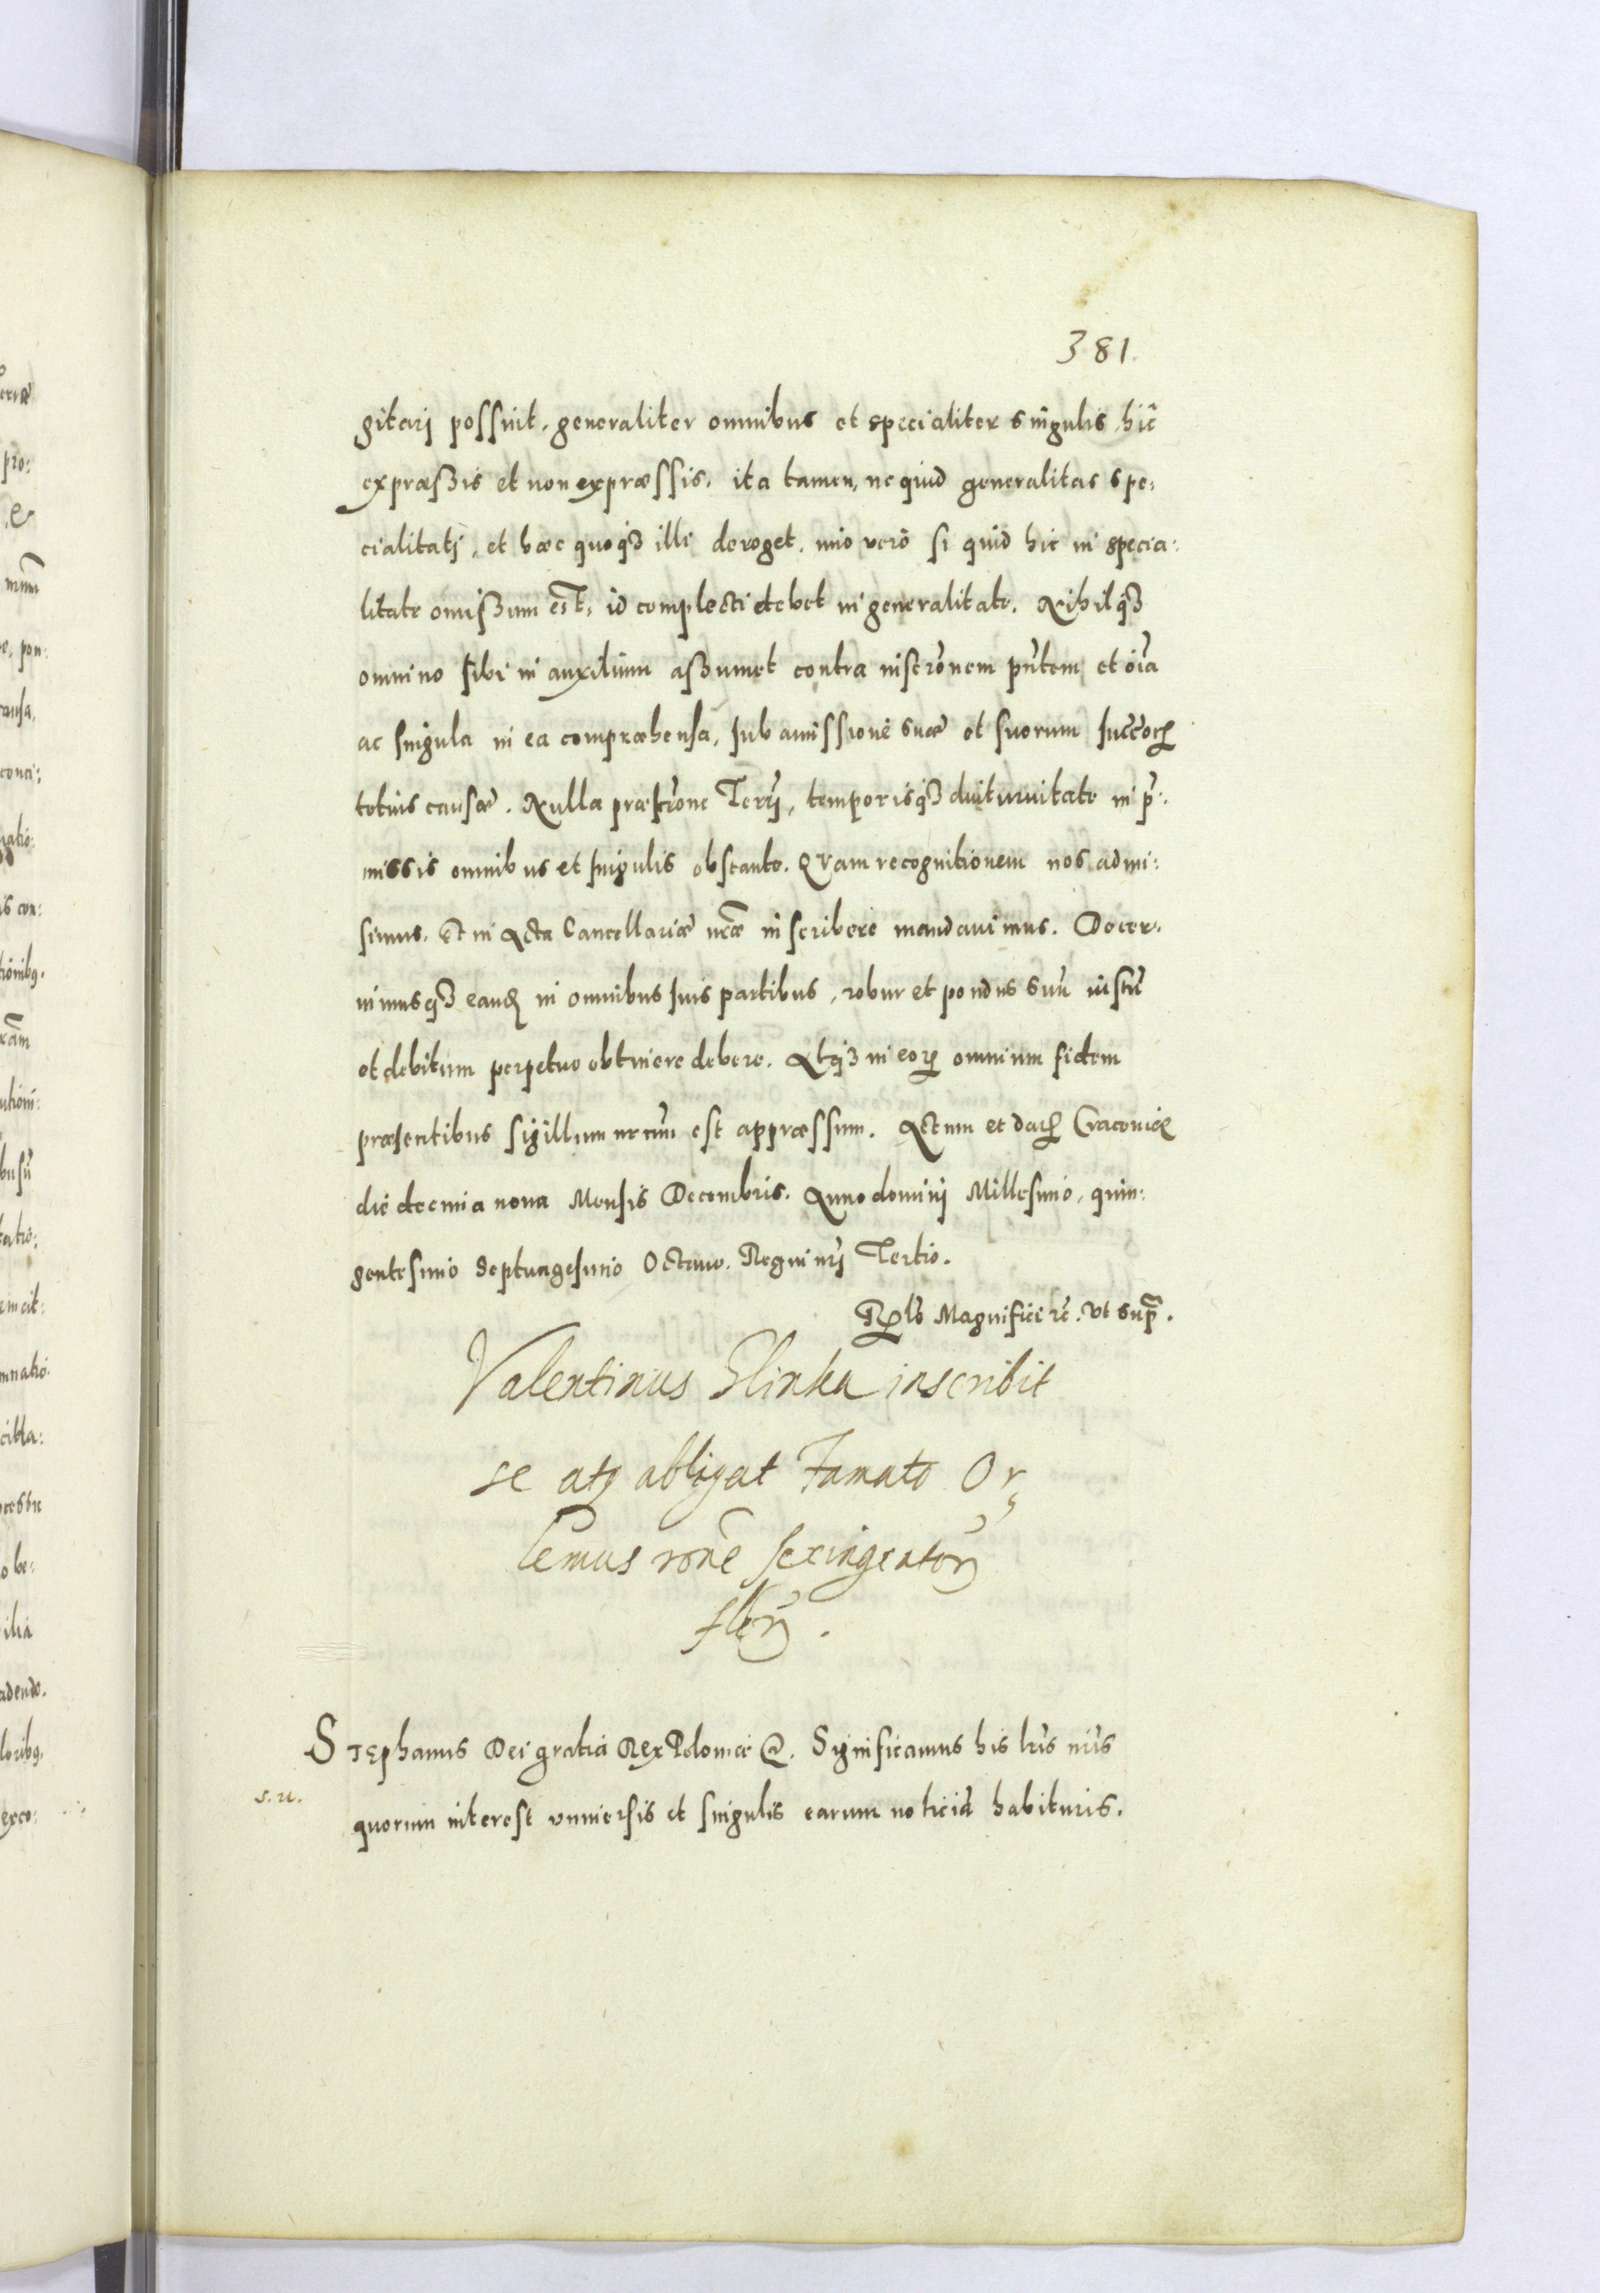 381.
gitarj possint, generaliter omnibus et specialiter singulis hic̄
expræssis et non expræssis. ita tamen, ne quid generalitas spe:
cialitatj, et hæc quoqꝫ illi deroget. imo verò si quid hic in specia:
litate omissum est, id complecti debet in generalitate. Nihilqꝫ
omnino sibi in auxilium assumet contra inscrōnem pn̄tem et oīa
ac singula in ea compræhensa, sub amissionē suæ et suorum succ̄orꝝ
totius causæ. Nulla præscrōne Terrj, temporisqꝫ diuturnitate in p̄:
missis omnibus et singulis obstante. Quam recognitionem nos admi:
simus. et in Acta Cancellariæ nr̄æ inscribere mandauimus. Decer:
nimusqꝫ eand in omnibus suis partibus, robur et pondus suū iustū
et debitum perpetuo obtinere debere. Atqꝫ in eorꝝ omnium fidem
præsentibus sigillum nrūm est appræssum. Actum et datꝝ Cracouiæ
die decima nona Mensis Decembris. Anno dominj Millesimo, quin:
gentesimo Septuagesimo Octauo. Regni nrj Tertio.
Rlō Magnifici rc̄. Vt supr̄.
Valentinus Glinka inscribit
se atqꝫ obligat Famato Or,
lemus rōne sexingentorꝝ
flerꝝ.
Stephanus Dei gratia Rex Poloniæ &. Significamus his lr̄is nr̄is
s. u.
quorum interest vniuersis et singulis earum noticiā habituris.